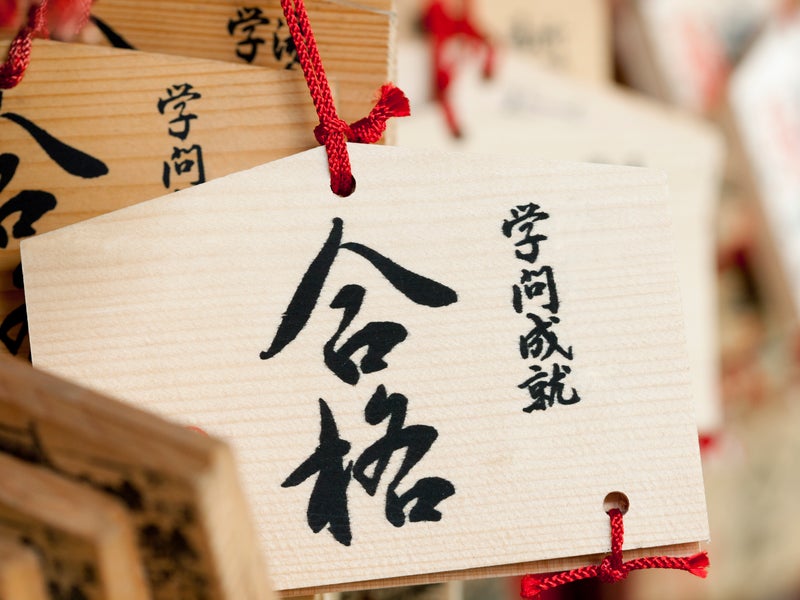 学問成就
合格
学問
学